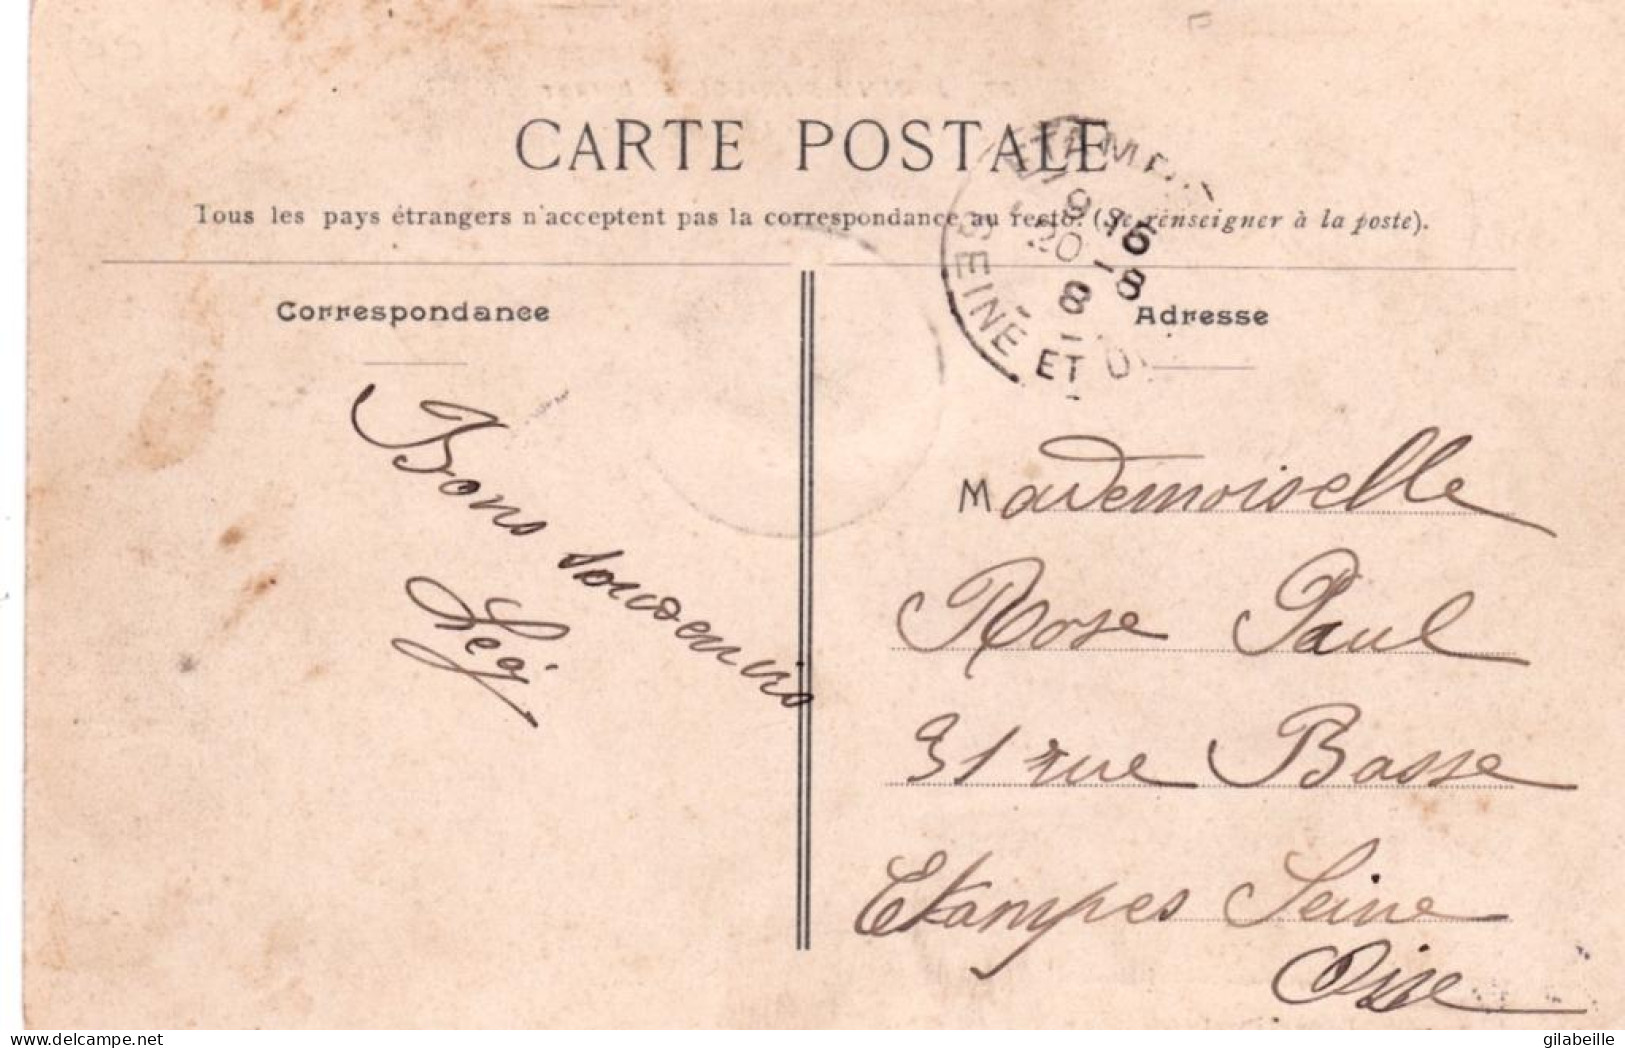 CARTE POSTALE
Tous les pays étrangers n'acceptent pas la correspondance au recto. (Se renseigner à la poste).
SEINE ET
Correspondance
Adresse
Bons souvenirs
Mademoiselle
Rose Paul
31 rue Basse
Etampes Seine
Oise
www.delcampe.net
gilabeille